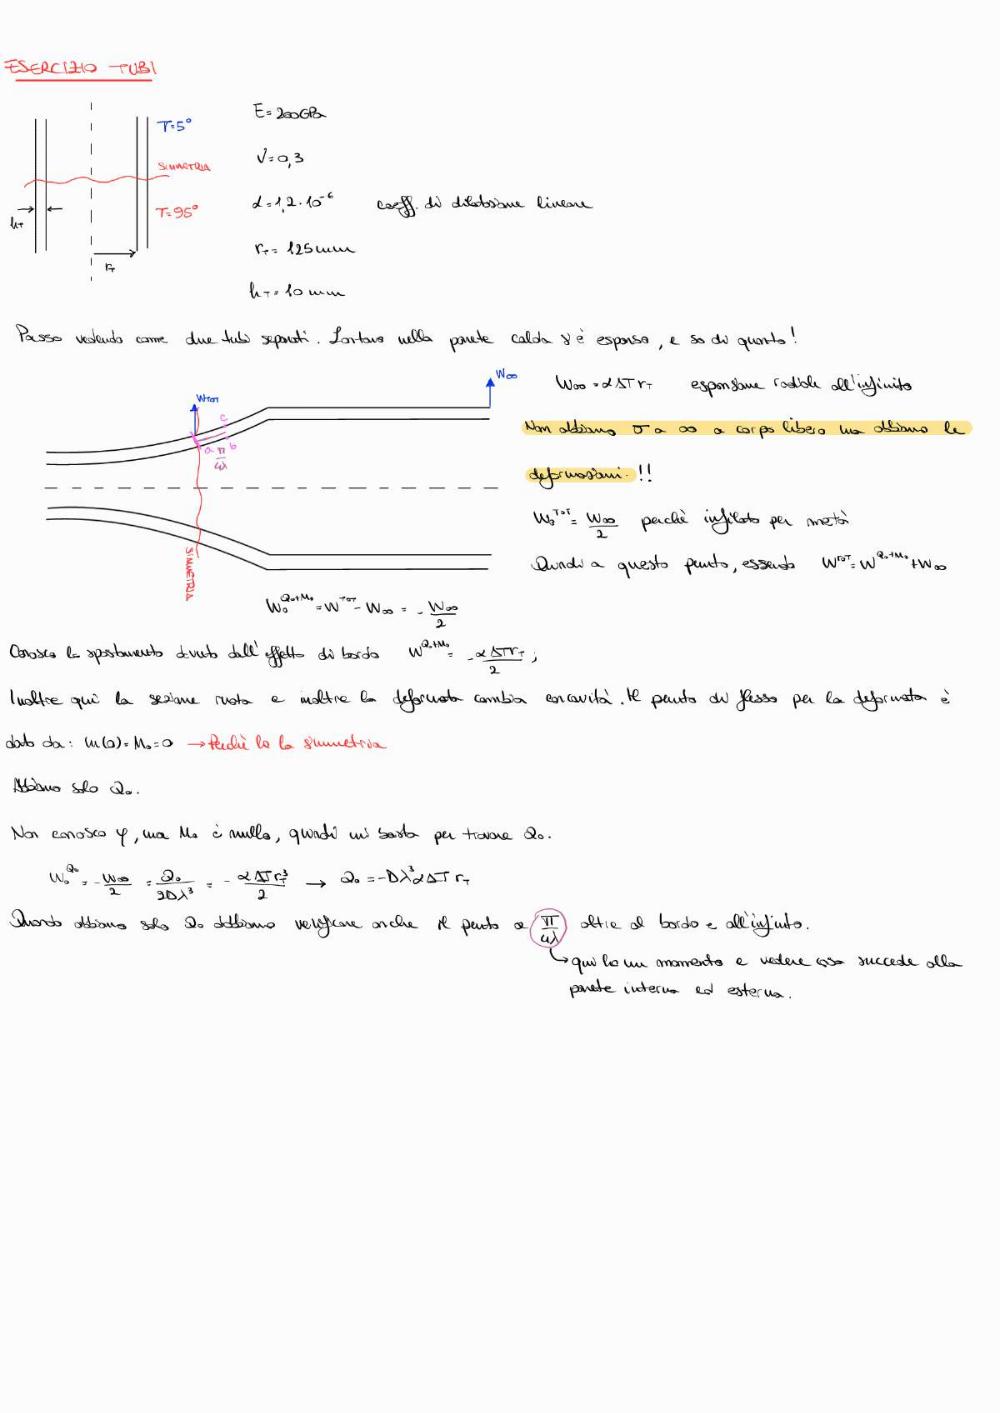 ESERCIZIO TUBI
E = 200GPa
T=5°
ν = 0,3
SIMMETRIA
α = 1,2 · 10⁻⁶ coeff. di dilatazione lineare
T=95°
hT
rT = 125 mm
rT
hT = 10 mm
Posso vederlo come due tubi separati. Lontano nella parete calda s'è espanso, e so di quanto!
W∞
W∞ = αΔT rT espansione radiale all'infinito
WTOT
c
Non abbiamo σ a ∞ a corpo libero ma abbiamo le
a b
π/4λ
deformazioni. !!
W₀ᵀᴼᵀ = W∞/2 perchè infilato per metà
SIMMETRIA
Quindi a questo punto, essendo Wᵀᴼᵀ = W^Q₀+M₀ + W∞
W₀^Q₀+M₀ = Wᵀᴼᵀ - W∞ = - W∞/2
Conosco lo spostamento dovuto dall'effetto di bordo W^Q₀+M₀ = -αΔTrT/2 ;
Inoltre qui la sezione ruota e inoltre la deformata cambia concavità. Il punto di flesso per la deformata è
dato da: m(0) = M₀ = 0 → Perchè ho la simmetria
Abbiamo solo Q₀.
Non conosco φ, ma M₀ è nullo, quindi mi basta per trovare Q₀.
W₀^Q₀ = - W∞/2 = Q₀/2Dλ³ = - αΔT rT³/2 → Q₀ = -Dλ³αΔT rT
Quando abbiamo solo Q₀ dobbiamo verificare anche il punto a π/4λ oltre al bordo e all'infinito.
↳ qui ho un momento e vedere cosa succede alla
parete interna ed esterna.